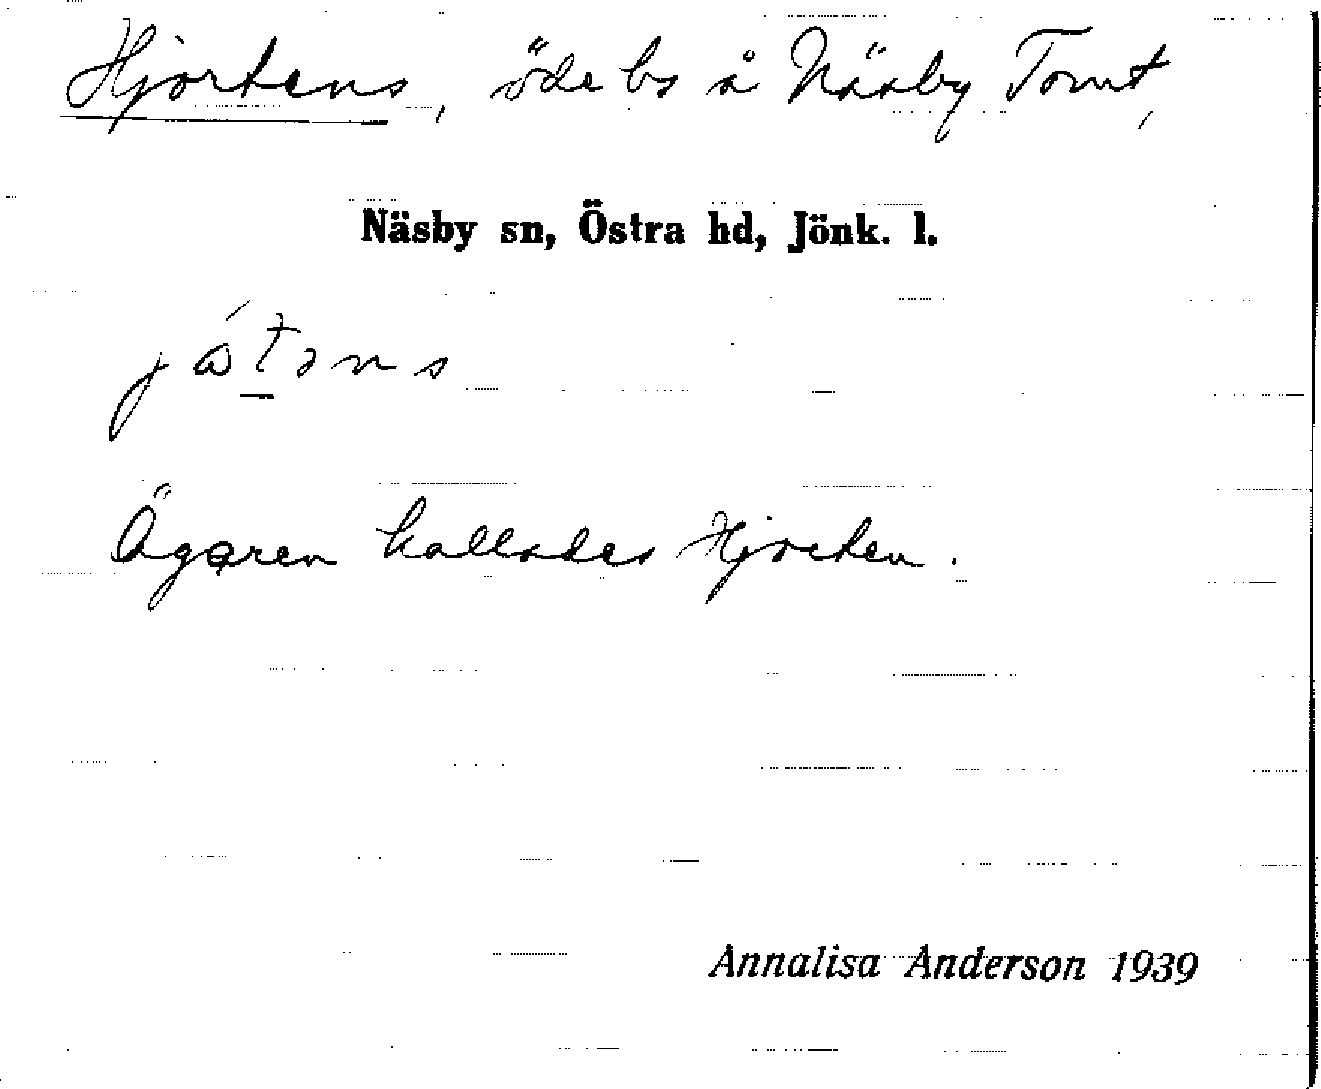 Hjortens, öde bs å Näsby Tomt,
Näsby sn, Östra hd, Jönk. l.
Ägaren kallades Hjorten.
Annalisa Anderson 1939